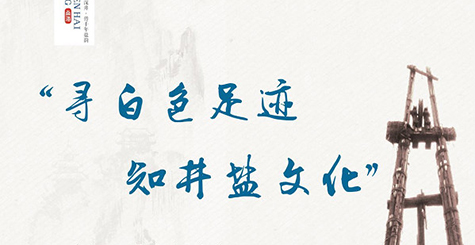 “寻白色足迹
知井盐文化”
EN HAI
G